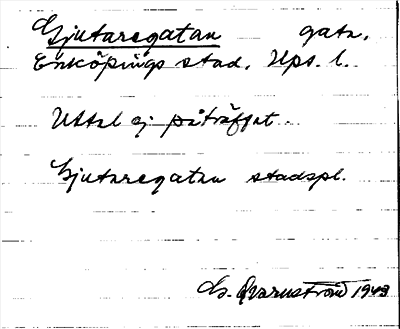 Gjutaregatan gata.
Enköpings stad. Ups. l.
Uttal ej påträffat.
Gjutaregatan stadspl.
G. Qvarnström 1943